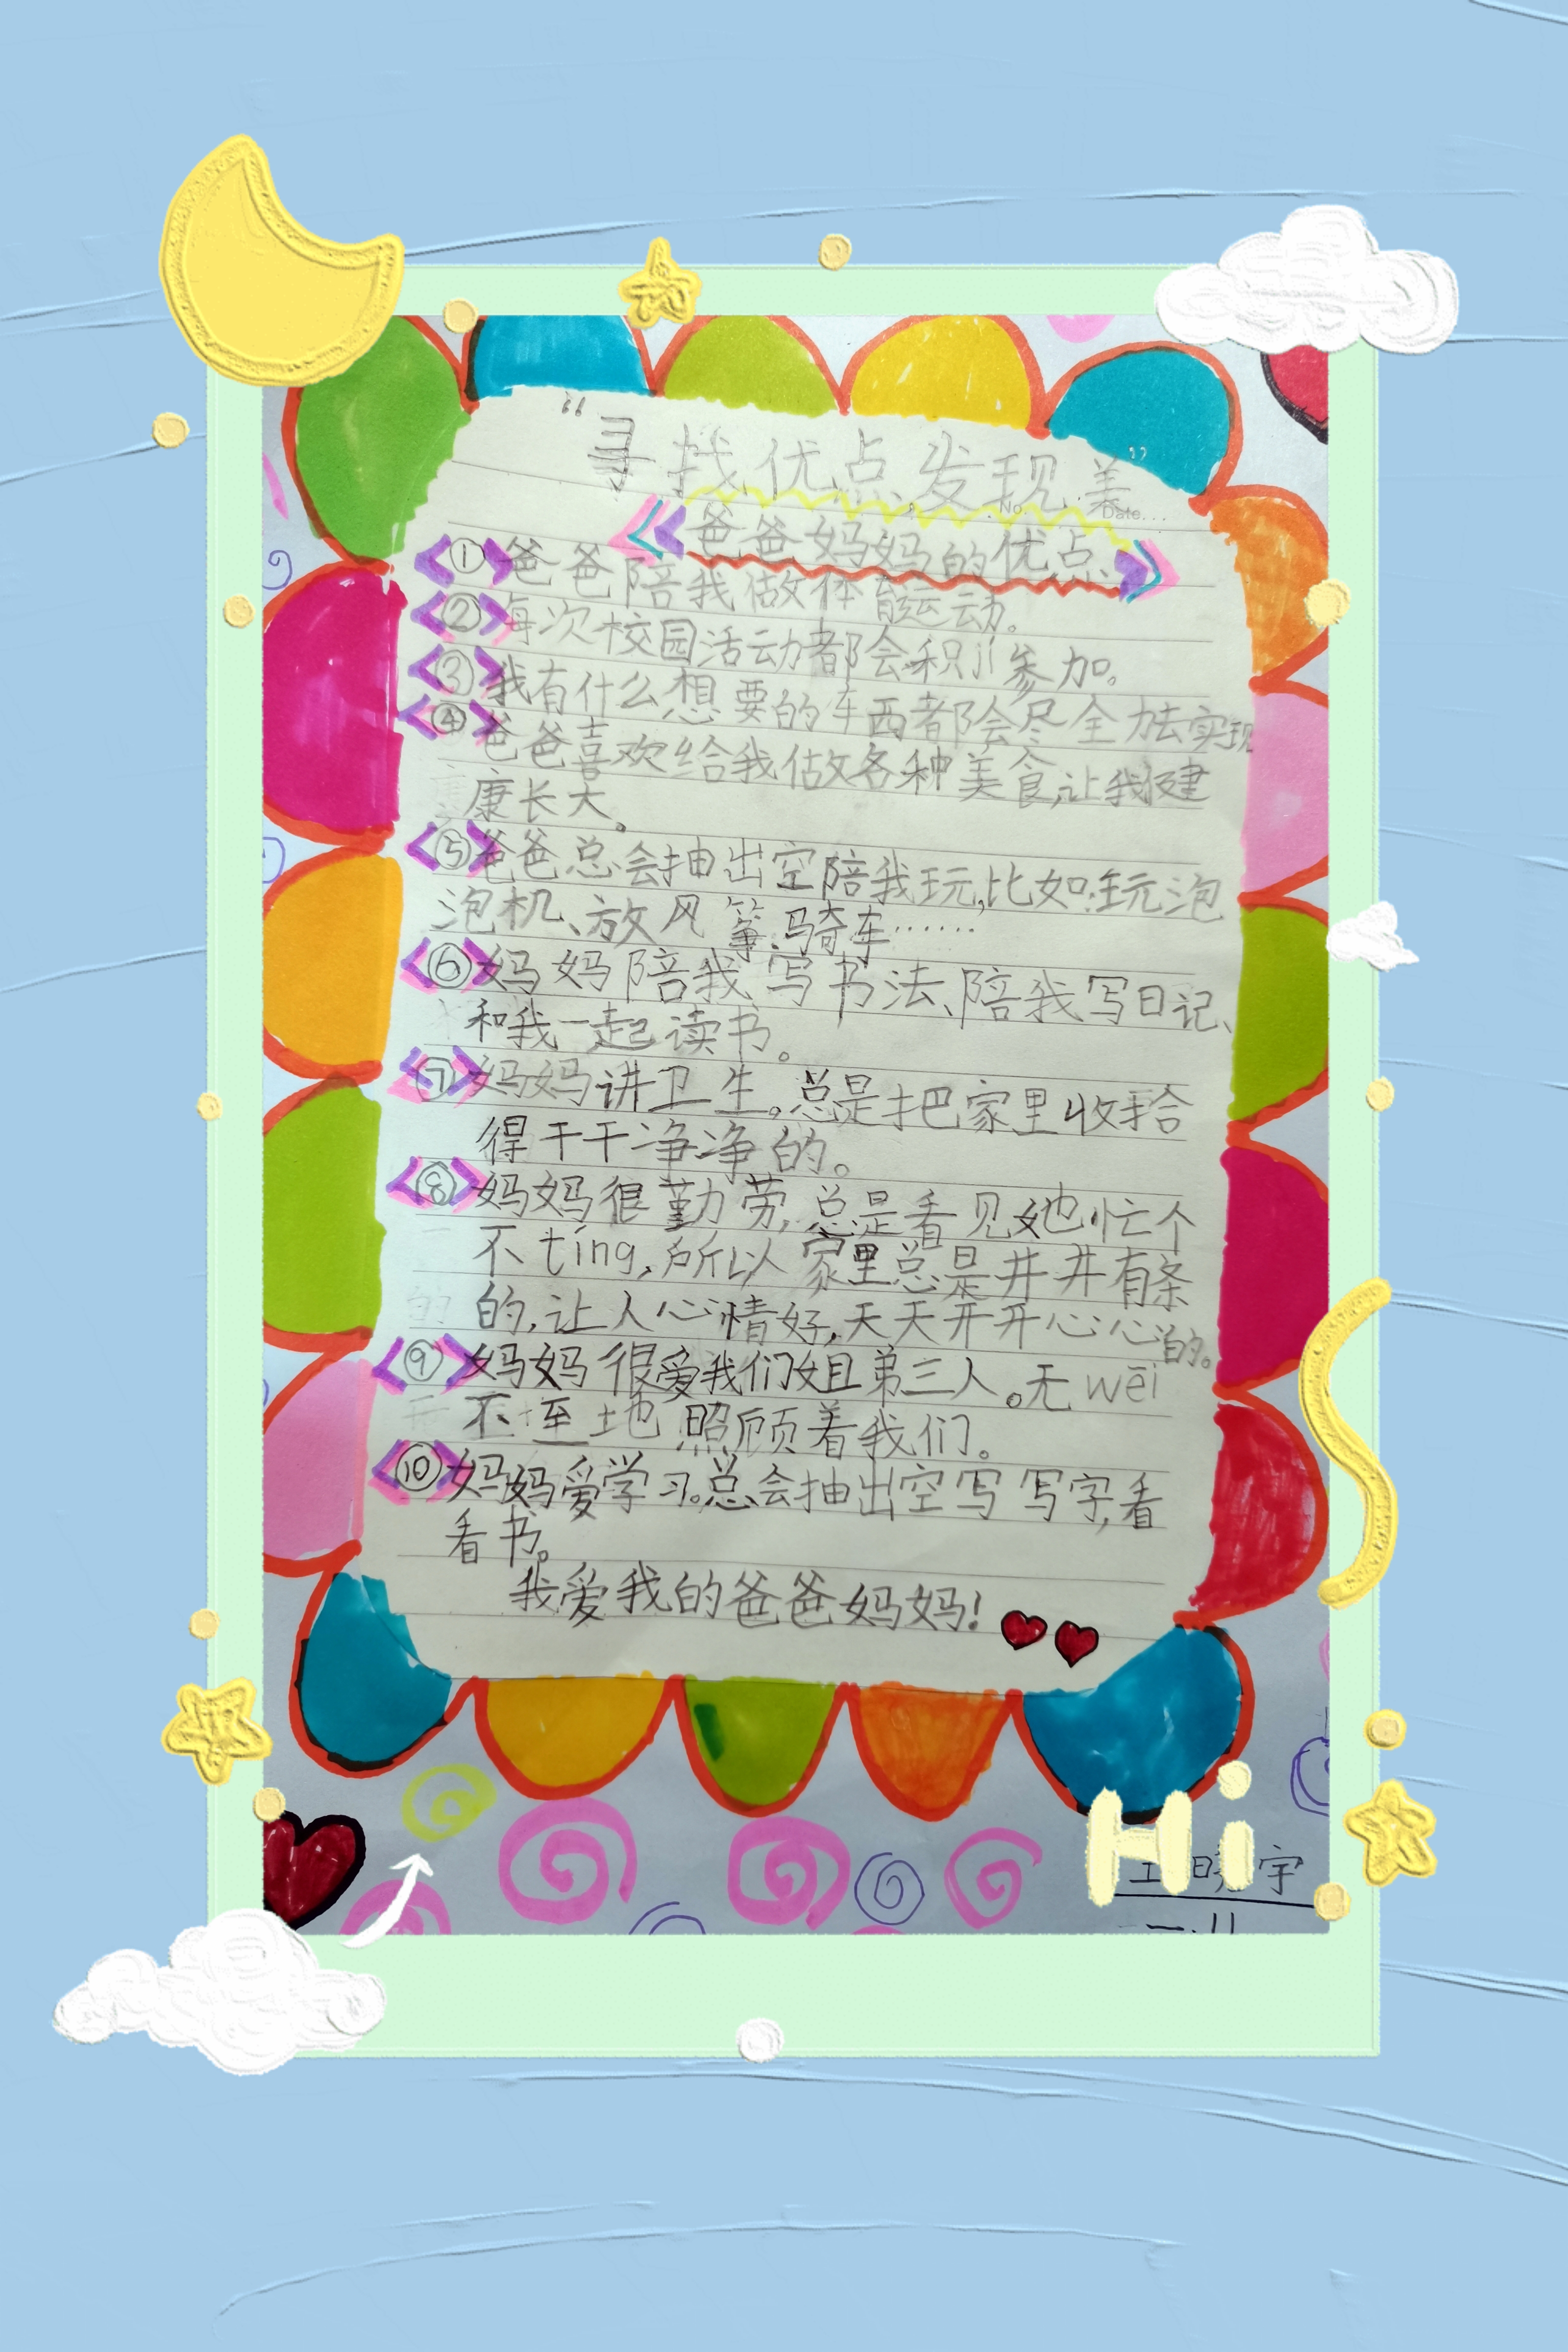 “寻找优点发现美”
No.
Date...
爸爸妈妈的优点
①爸爸陪我做体育运动。
②每次校园活动都会积jí参加。
③我有什么想要的东西都会尽全力去实现
④爸爸喜欢给我做各种美食,让我健
康长大。
⑤爸爸总会抽出空陪我玩,比如:玩泡
泡机、放风筝、骑车……
⑥妈妈陪我写书法、陪我写日记、
和我一起读书。
⑦妈妈讲卫生。总是把家里收拾
得干干净净的。
⑧妈妈很勤劳,总是看见她忙个
不tíng,所以家里总是井井有条
的,让人心情好,天天开开心心的。
⑨妈妈很爱我们姐弟三人。无wēi
不至地照顾着我们。
⑩妈妈爱学习。总会抽出空写写字,看
看书。
我爱我的爸爸妈妈!
Hi
宇